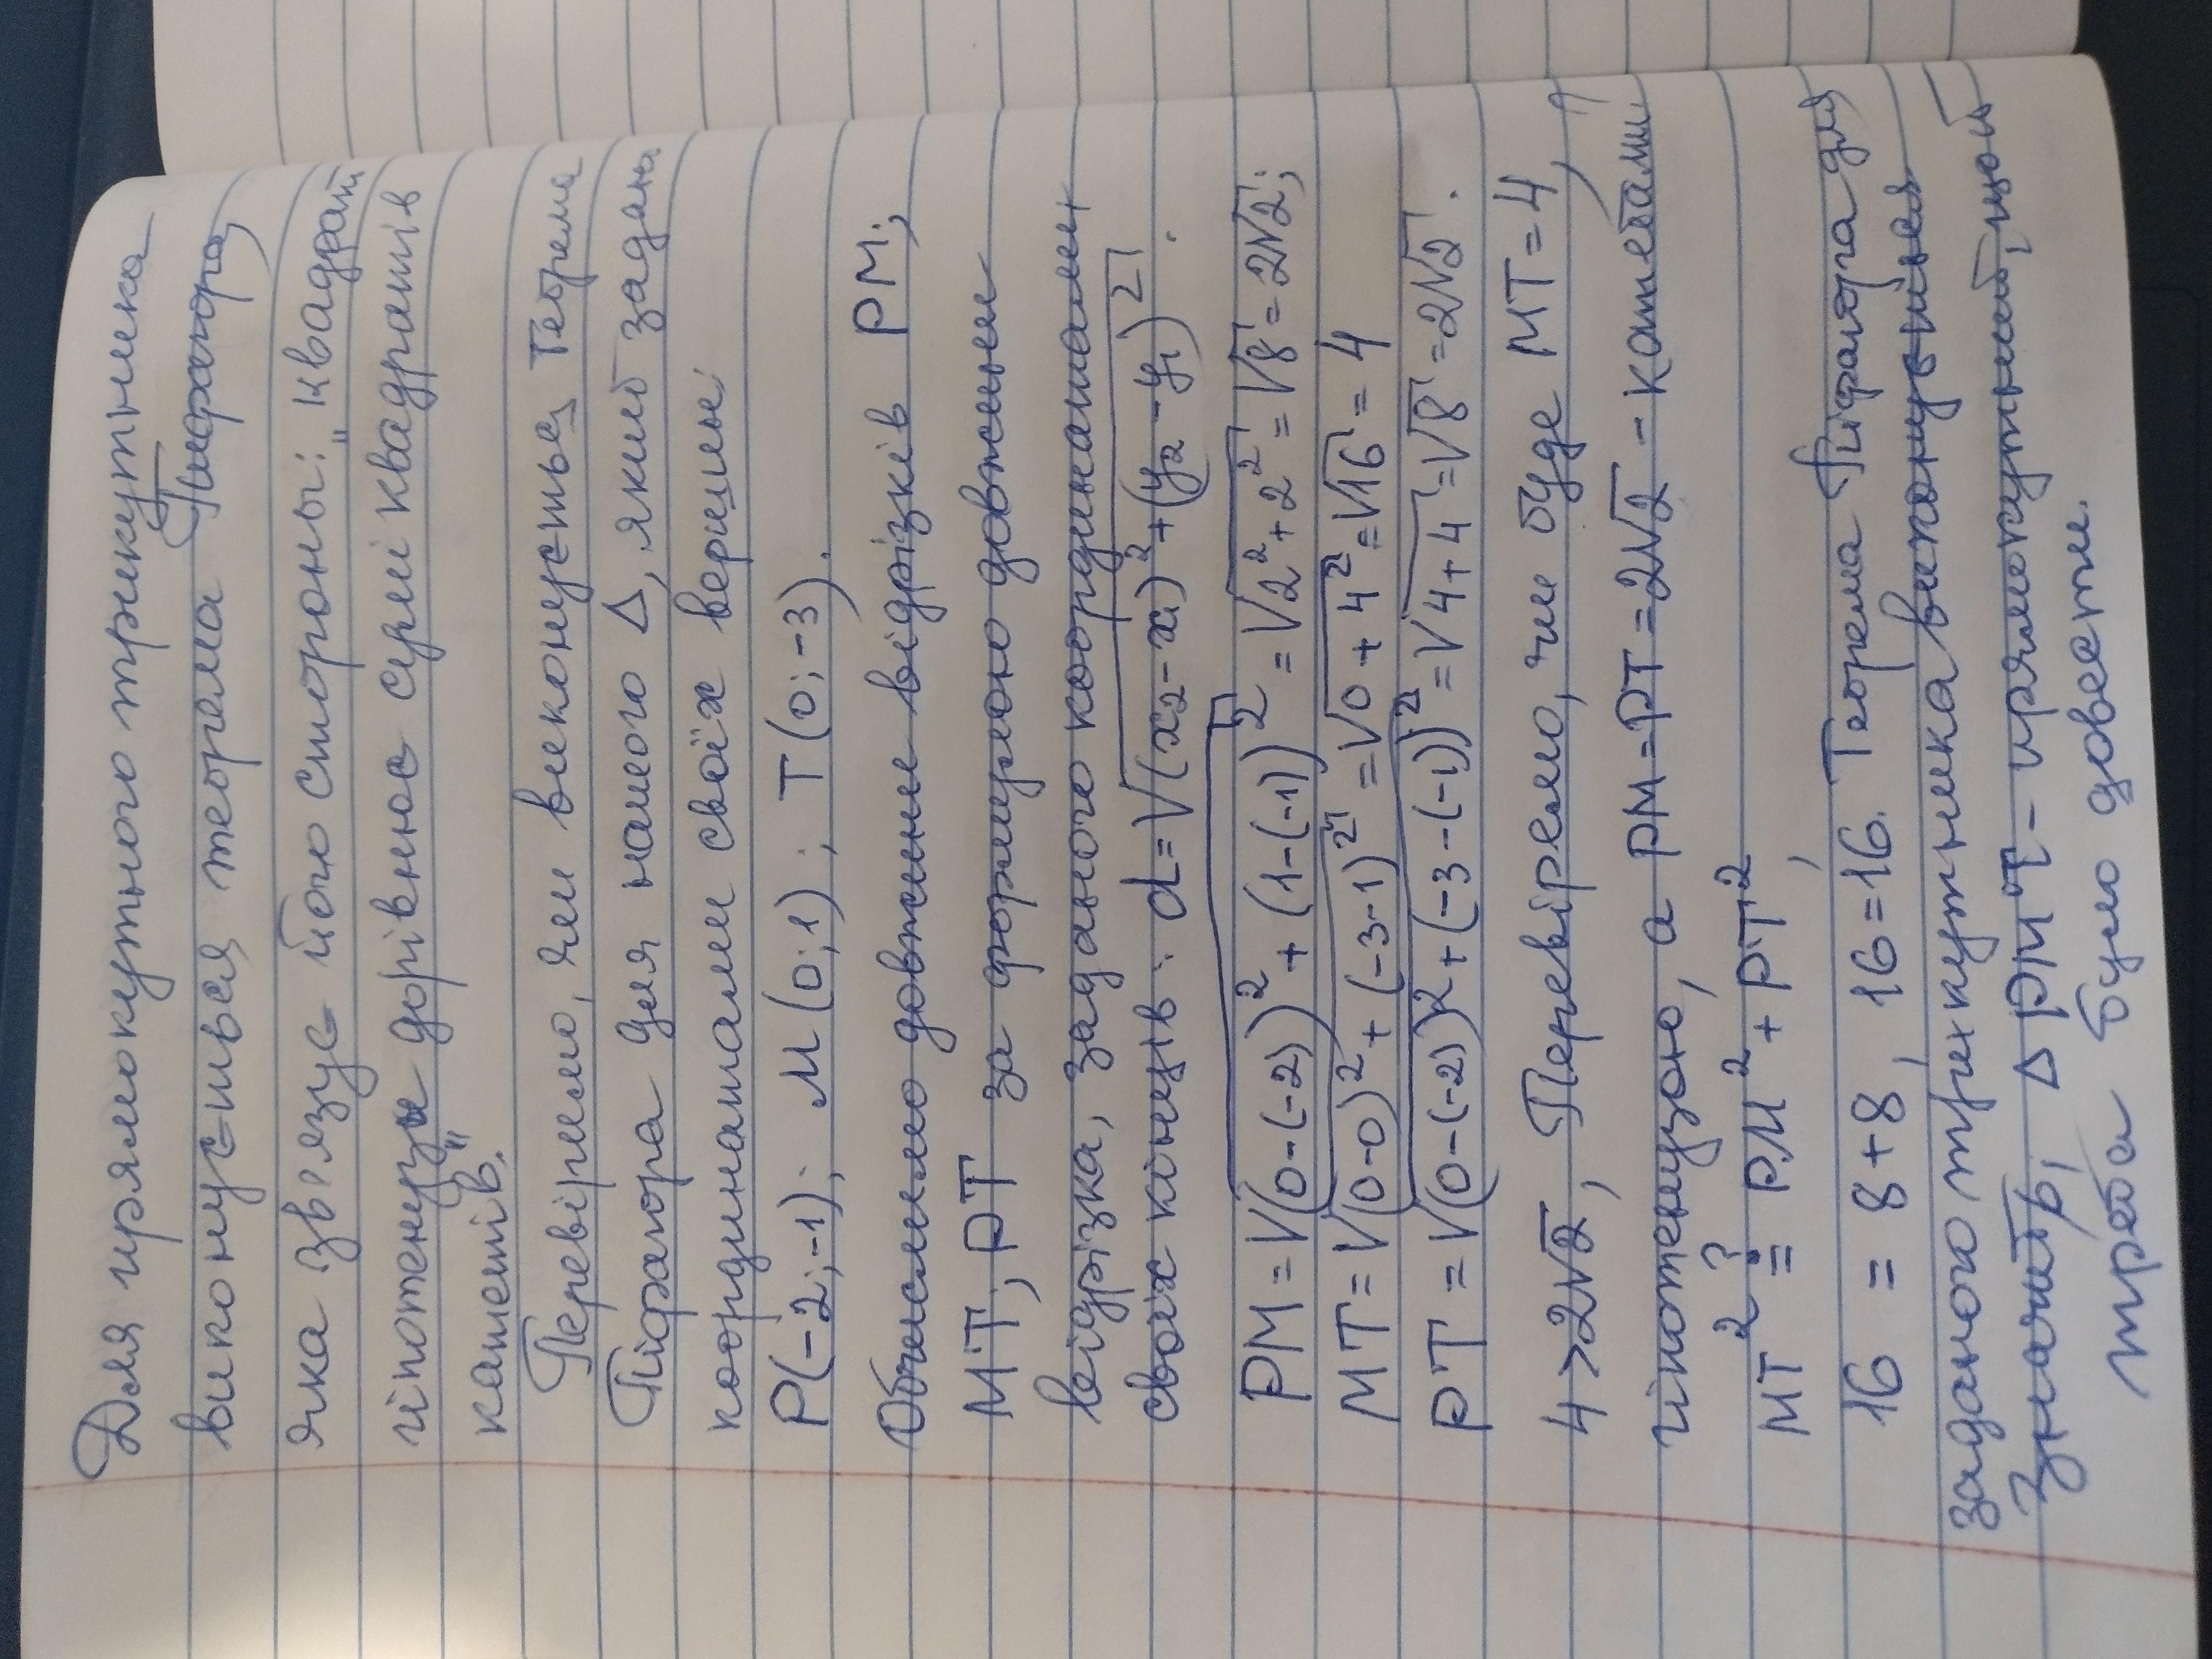 Для прямокутного трикутника
виконується теорема Пифагора,
яка звязує його стороны: „квадрат
гіпотенузы дорівнює сумі квадратів
катетів."
Перевіримо, чи виконується теорема
Піфагора для нашого Δ, який задан
координатами своїх вершин:
P(-2;-1); M(0;1); T(0;-3).
Обчислимо довжини відрізків PM;
MT; PT за формулою довжини
відрізка, заданого координатами
своїх кінців: d=√(x₂-x₁)²+(y₂-y₁)².
PM=√(0-(-2))²+(1-(-1))²=√2²+2²=√8=2√2;
MT=√(0-0)²+(-3-1)²=√0+4²=√16=4
PT=√(0-(-2))²+(-3-(-1))²=√4+4=√8=2√2.
4>2√2, Перевіримо, чи буде MT=4,
гіпотенузою, а PM=PT=2√2-катетами
MT² ?= PM²+PT²,
16 = 8+8, 16=16. Теорема Піфагора для
заданого трикутника виконується
Значить, Δ PMT - прямокутний, що й
треба було довести.